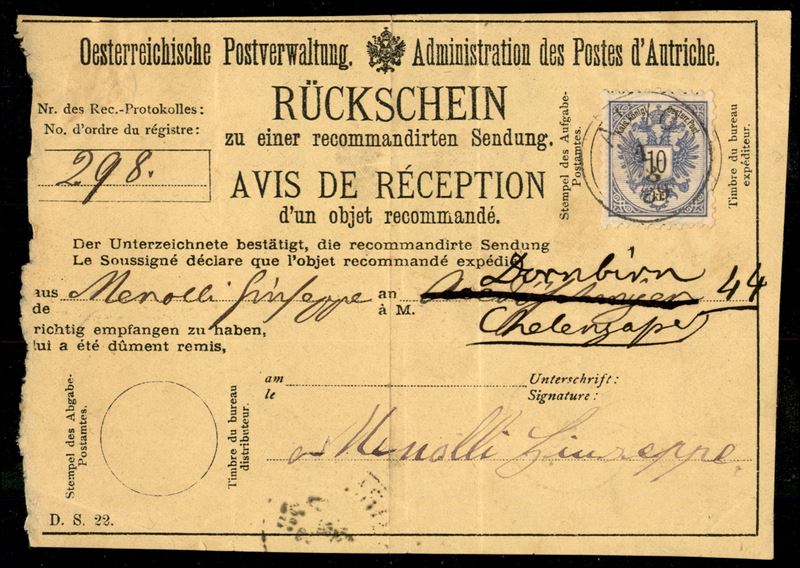 Oesterreichische Postverwaltung. Administration des Postes d'Autriche.
RÜCKSCHEIN
zu einer recommandirten Sendung.
AVIS DE RÉCEPTION
d'un objet recommandé.
Nr. des Rec.-Protokolles:
No. d'ordre du régistre:
298.
Stempel des Aufgabe-
Postamtes.
Kais. Königl. Oesterr. Post
10
Timbre du bureau
expéditeur.
Der Unterzeichnete bestätigt, die recommandirte Sendung
Le Soussigné déclare que l'objet recommandé expédié
Dornbirn
aus Menolli Giuseppe an 44
de à M.
richtig empfangen zu haben,
lui a été dûment remis,
Stempel des Abgabe-
Postamtes.
Timbre du bureau
distributeur.
am Unterschrift:
le Signature:
Menolli Giuseppe
D. S. 22.